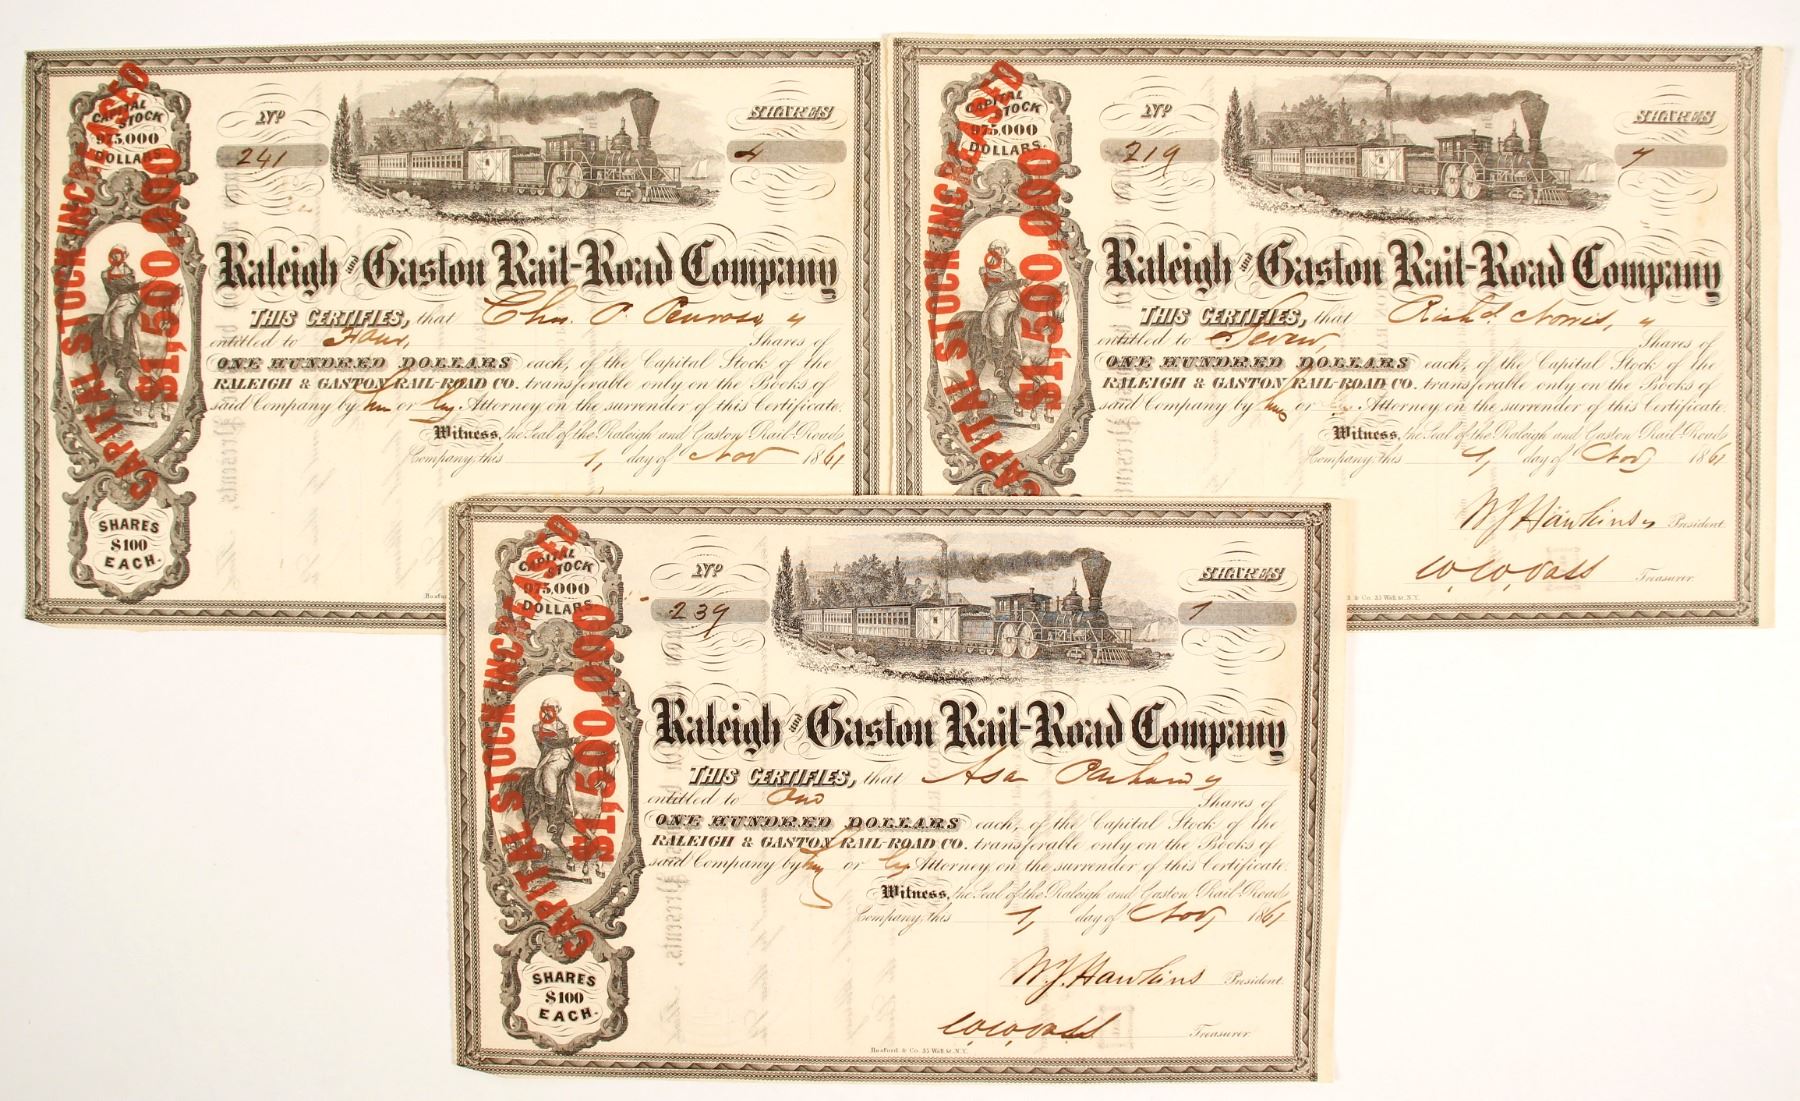 CAPITAL STOCK 975,000 DOLLARS.
CAPITAL STOCK INCREASED
$1,500,000
SHARES $100 EACH.
Nº SHARES
241 4
Raleigh and Gaston Rail-Road Company
THIS CERTIFIES, that Chas. P. Penrose, is
entitled to Four, Shares of
ONE HUNDRED DOLLARS each, of the Capital Stock of the
RALEIGH & GASTON RAIL-ROAD CO. transferable only on the Books of
said Company by him or his Attorney on the surrender of this Certificate.
Witness, the Seal of the Raleigh and Gaston Rail-Road
Company, this 1, day of Nov 1861
CAPITAL STOCK 975,000 DOLLARS.
CAPITAL STOCK INCREASED
$1,500,000
Nº SHARES
219 7
Raleigh and Gaston Rail-Road Company
THIS CERTIFIES, that Richd. Norris, is
entitled to Seven, Shares of
ONE HUNDRED DOLLARS each, of the Capital Stock of the
RALEIGH & GASTON RAIL-ROAD CO. transferable only on the Books of
said Company by him or his Attorney on the surrender of this Certificate.
Witness, the Seal of the Raleigh and Gaston Rail-Road
Company, this 1, day of Nov, 1861
W. J. Hawkins President.
W. W. Vass Treasurer.
& Co. 35 Wall st. N.Y.
CAPITAL STOCK 975,000 DOLLARS
CAPITAL STOCK INCREASED
$1,500,000
SHARES $100 EACH.
Nº SHARES
239 1
Raleigh and Gaston Rail-Road Company
THIS CERTIFIES, that Asa Parham is
entitled to One Shares of
ONE HUNDRED DOLLARS each, of the Capital Stock of the
RALEIGH & GASTON RAIL-ROAD CO. transferable only on the Books of
said Company by him or his Attorney on the surrender of this Certificate.
Witness, the Seal of the Raleigh and Gaston Rail-Road
Company, this 1, day of Nov, 1861
W. J. Hawkins President.
W. W. Vass Treasurer.
Hosford & Co. 35 Wall st. N.Y.